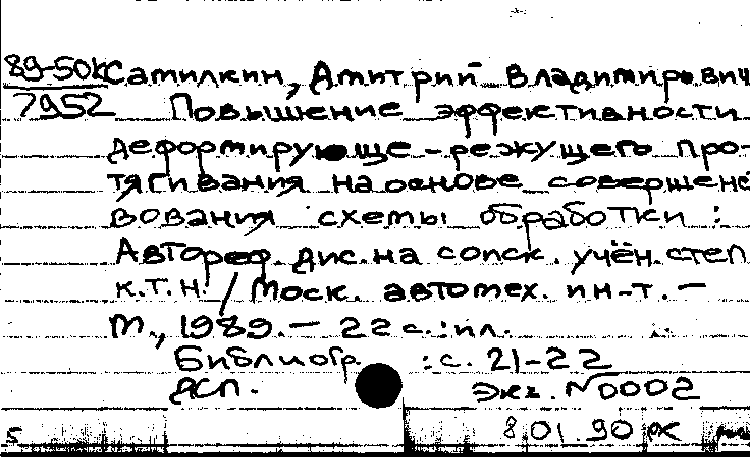 89-50К Самилкин, Дмитрий Владимирович
7952 Повышение эффективности
деформирующе-режущего про-
тягивания на основе совершенс
вования схемы обработки :
Автореф. дис. на соиск. учён. степ
к.т.н. / Моск. автомех. ин-т. —
М., 1989. — 22 с. : ил.
Библиогр. : с. 21-22
ДСП. Экз. №0002
5 8.01.90